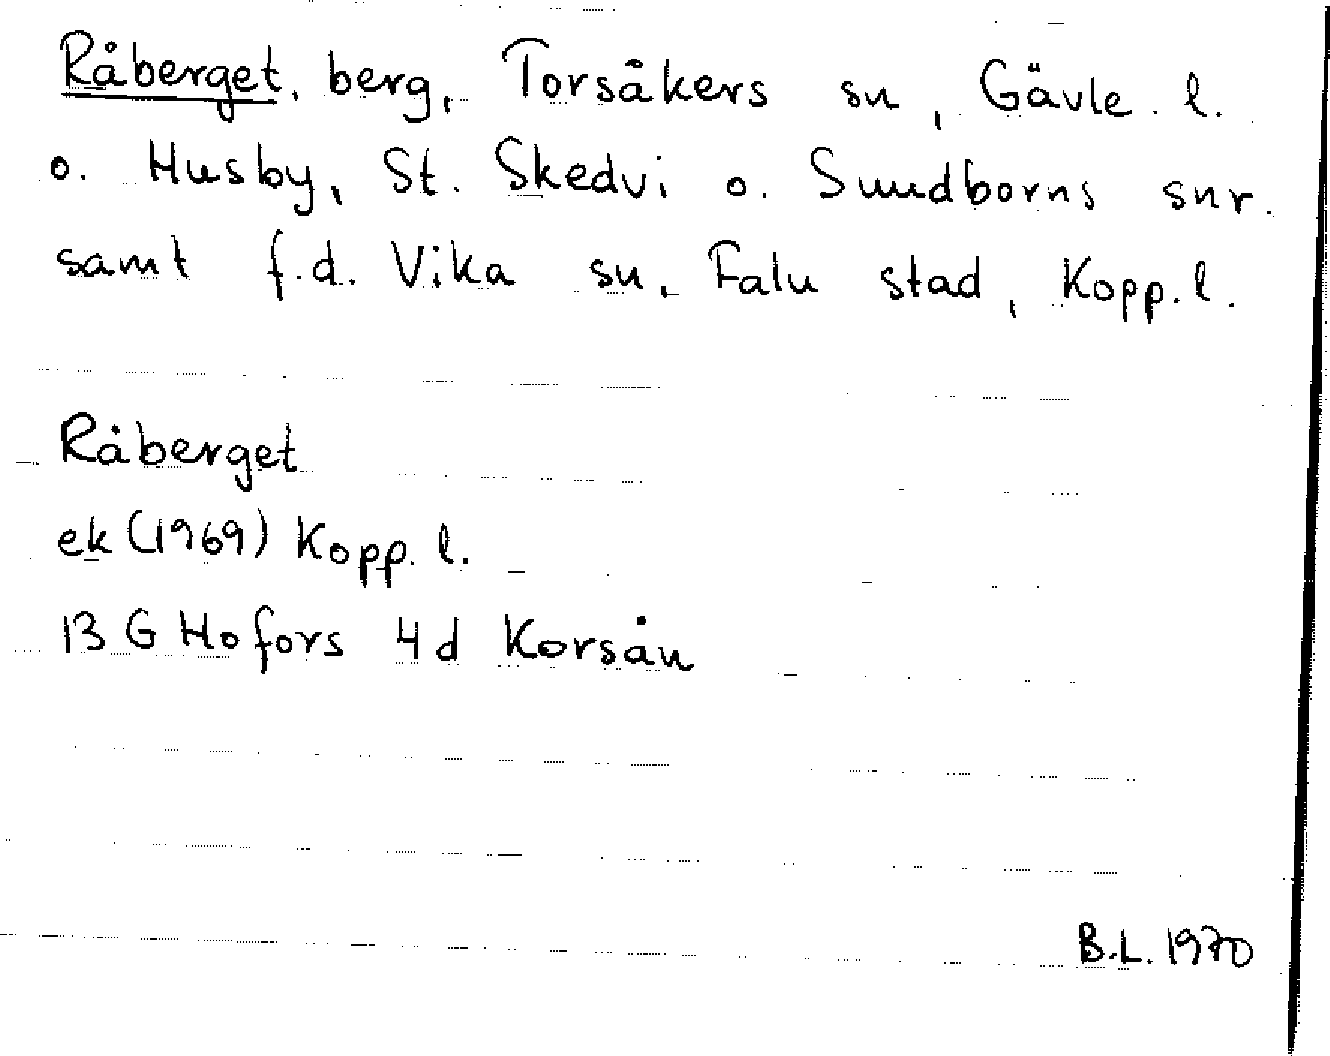 Råberget, berg, Torsåkers sn, Gävle. l.
o. Husby, St. Skedvi o. Sundborns snr.
samt f.d. Vika sn, Falu stad, Kopp. l.
Råberget
ek (1969) Kopp. l.
13 G Hofors 4d Korsån
B.L. 1970